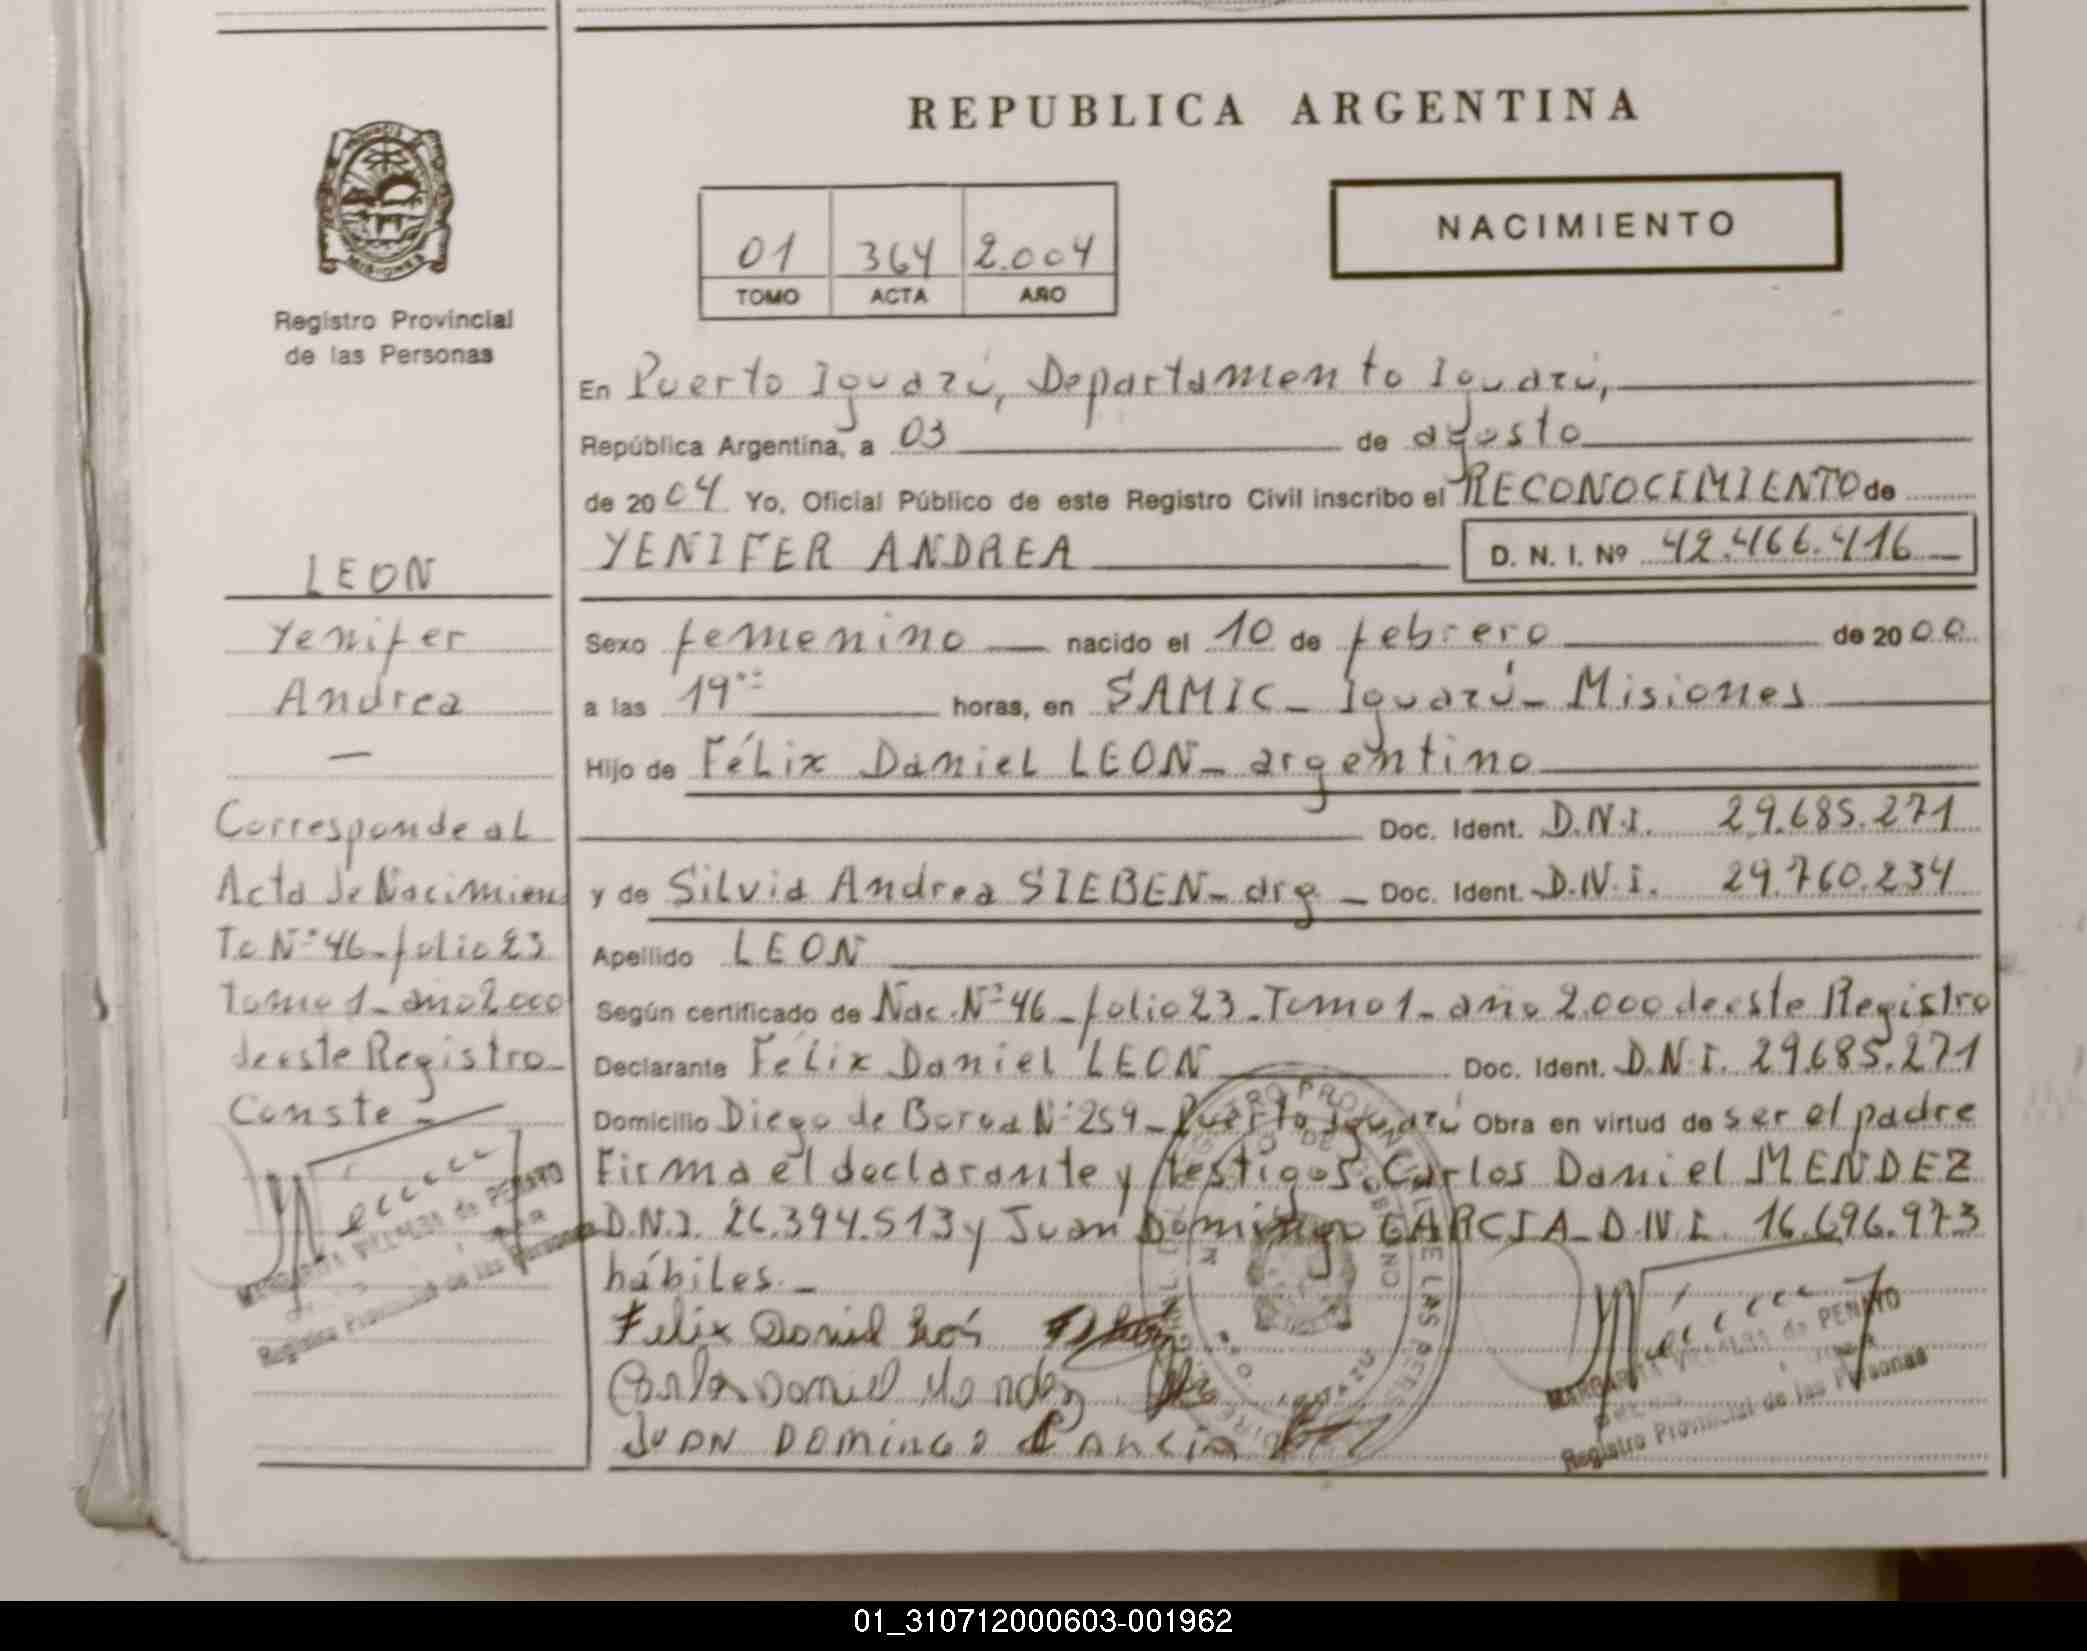 REPUBLICA ARGENTINA
NACIMIENTO
01 364 2.004
TOMO ACTA AÑO
MISIONES
Registro Provincial
de las Personas
En Puerto Iguazú, Departamento Iguazú,
República Argentina, a 03 de agosto
de 2004 Yo, Oficial Público de este Registro Civil inscribo el RECONOCIMIENTO de
YENIFER ANDREA D. N. I. Nº 42.466.416
Sexo femenino nacido el 10 de febrero de 2000
a las 19 horas, en SAMIC - Iguazú - Misiones
Hijo de Félix Daniel LEON - argentino
Doc. Ident. D.N.I. 29.685.271
y de Silvia Andrea SIEBEN - arg - Doc. Ident. D.N.I. 29.760.234
Apellido LEON
Según certificado de Nac. Nº 46 - folio 23 - Tomo 1 - año 2.000 de este Registro
Declarante Félix Daniel LEON Doc. Ident. D.N.I. 29.685.271
Domicilio Diego de Boroa Nº 259 - Puerto Iguazú Obra en virtud de ser el padre
Firma el declarante y testigos: Carlos Daniel MENDEZ
D.N.I. 26.394.513 y Juan Domingo GARCIA - D.N.I. 16.696.973
hábiles. -
Felix Daniel León
Carlos Daniel Mendez
JUAN DOMINGO GARCIA
LEON
Yenifer
Andrea
—
Corresponde al
Acta de Nacimien
to Nº 46 - folio 23
Tomo 1 - año 2.000
de este Registro -
Conste -
MARGARITA de PENAYO
Registro Provincial de las Personas
MARGARITA de PENAYO
Registro Provincial de las Personas
01_310712000603-001962